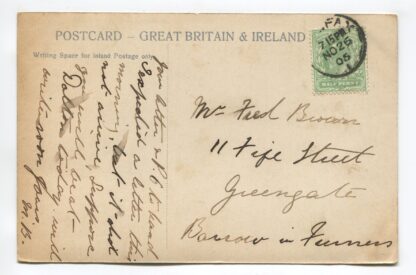 POSTCARD – GREAT BRITAIN & IRELAND
Writing Space for Inland Postage only
7.15PM
NO 26
05
HALF PENNY
Your letter & P.C. to hand
Expected a letter this
morning, but it did
not arrive. Suppose
you will beat
Dalton today will
write soon Yours
Mr Fred Brown
11 Fife Street
Greengate
Barrow in Furness